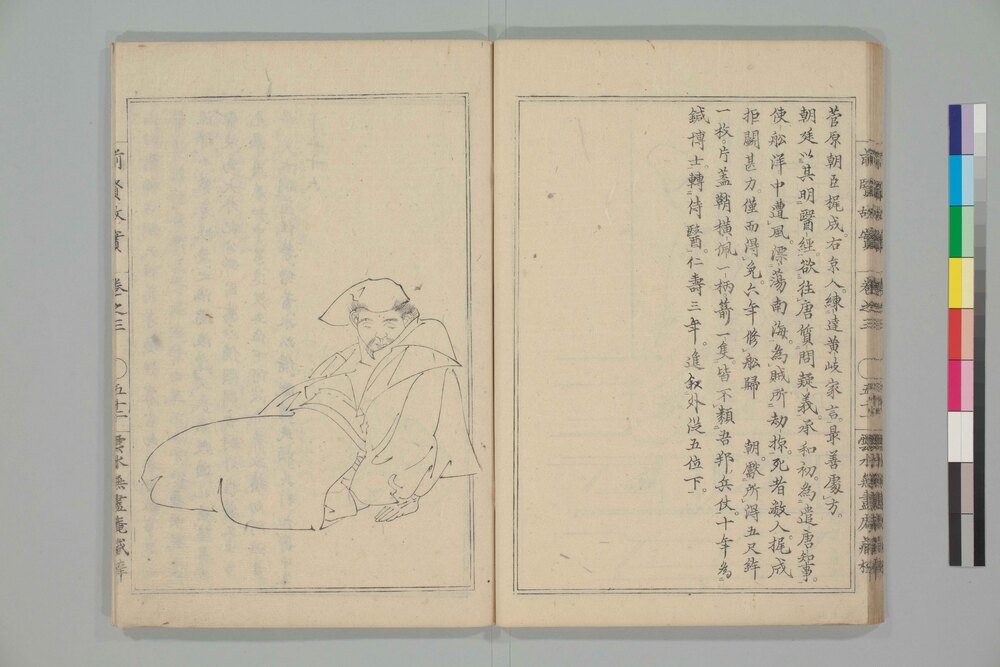 菅原朝臣梶成。右京人。練達黄岐家言。最善處方。
朝廷以其明醫經。欲往唐質問疑義。承和初。為遣唐知事。
使舩洋中遭風。漂蕩南海。為賊所劫掠。死者數人。梶成
拒鬪甚力。僅而得免。六年修舩歸 朝。獻所得五尺鉾
一枚。片蓋鞘横佩一柄。箭一隻。皆不類吾邦兵仗。十年為
鍼博士。轉侍醫。仁壽三年。進叙外從五位下。
前賢故實 巻之三 五十二 雲水無盡庵蔵梓